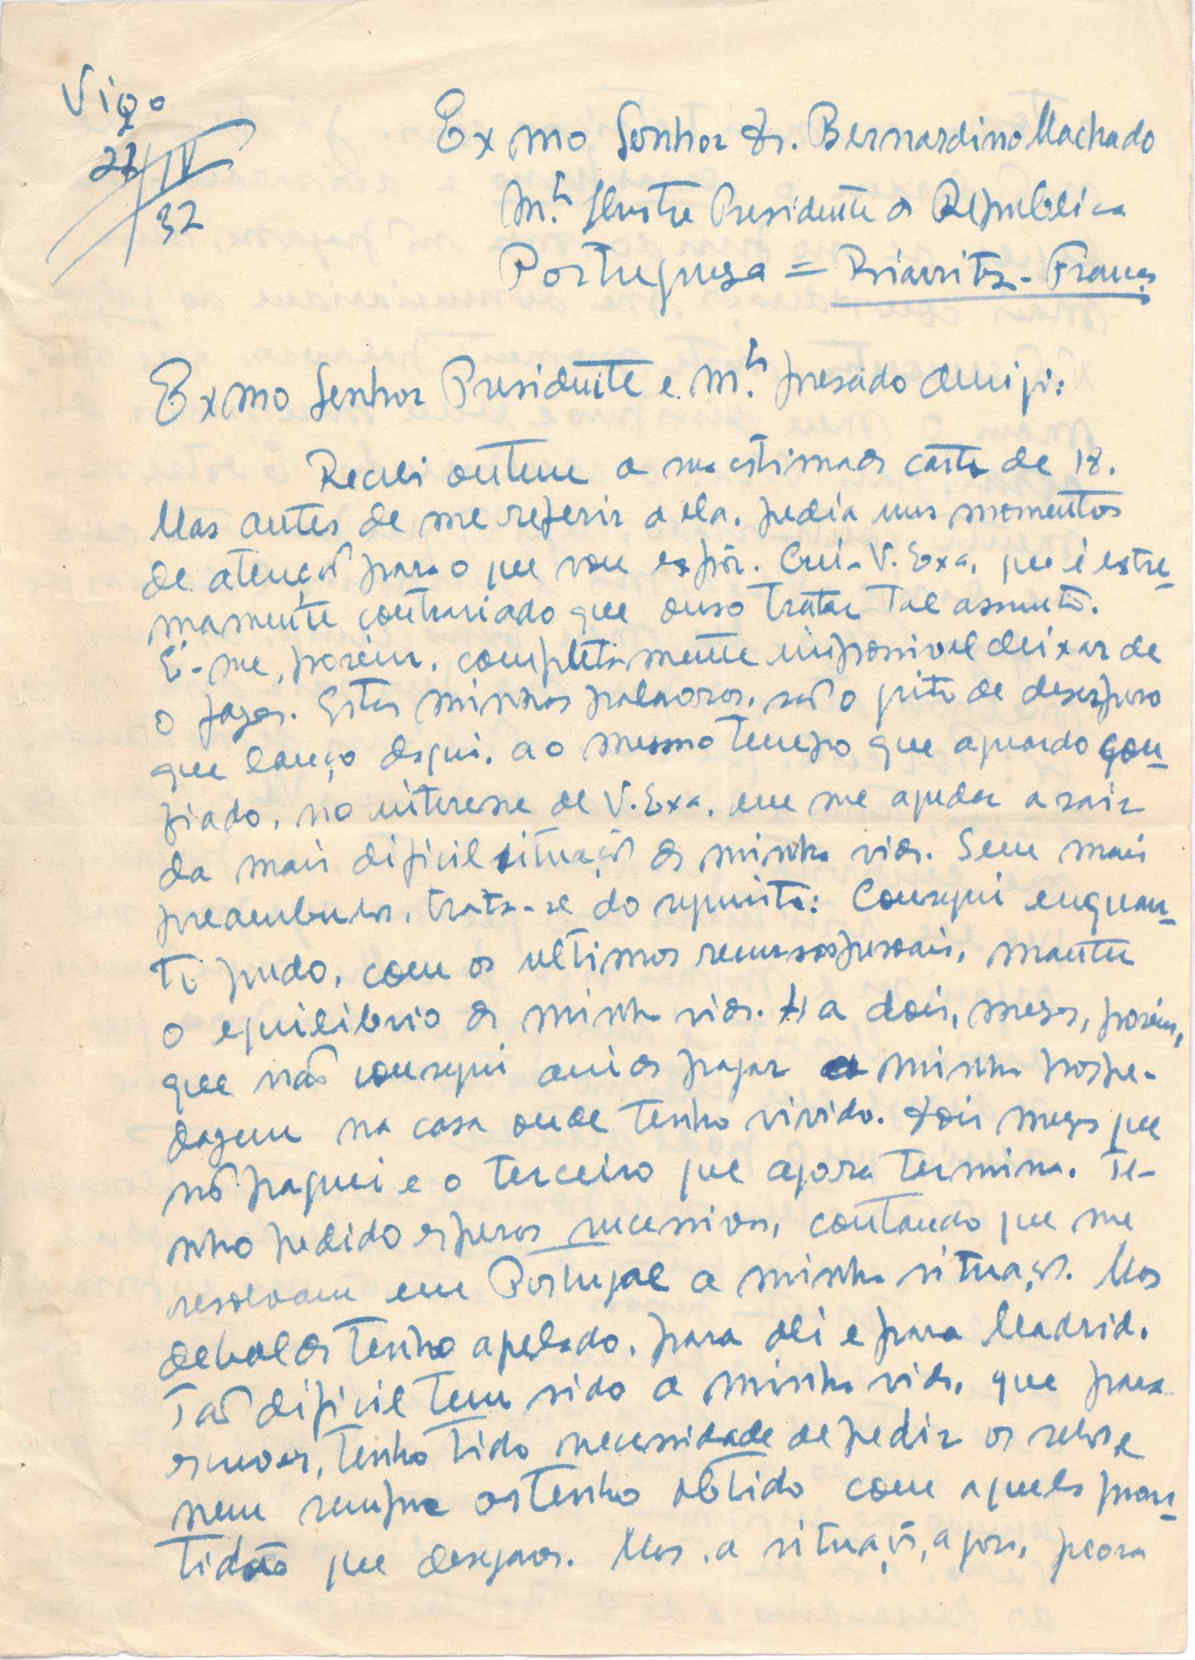 Vigo
Exmo Senhor Dr. Bernardino Machado
27/IV
M.to Ilustre Presidente da Republica
32
Portuguesa = Biarritz - França
Exmo Senhor Presidente e M.to presado Amigo:
Recebi ontem a sua estimada carta de 18.
Mas antes de me referir a ela, pedia uns momentos
de atenção para o que vou expôr. Creia V. Exa, que é estre-
mamente contrariado que ouso tratar tal assunto.
É-me, porém, completamente impossivel deixar de
o fazer. Estas minhas palavras, são o grito de desespero
que lanço daqui, ao mesmo tempo que aguardo con-
fiado, no interesse de V. Exa, em me ajudar a sair
da mais dificil situação da minha vida. Sem mais
preambulos, trata-se do seguinte: Consegui enquan-
to pude, com os ultimos recursos pessoais, manter
o equilibrio da minha vida. Ha dois, meses, porém,
que não consegui ainda pagar a minha hospe-
dagem na casa onde tenho vivido. Dois meses que
não paguei e o terceiro que agora termina. Te-
nho pedido esperas sucessivas, contando que me
resolvam em Portugal a minha situação. Mas
debalde tenho apelado, para ali e para Madrid.
Tão dificil tem sido a minha vida, que para
escrever, tenho tido necessidade de pedir os selos e
nem sempre os tenho obtido com aquela pron-
tidão que desejava. Mas, a situação, agora, peora